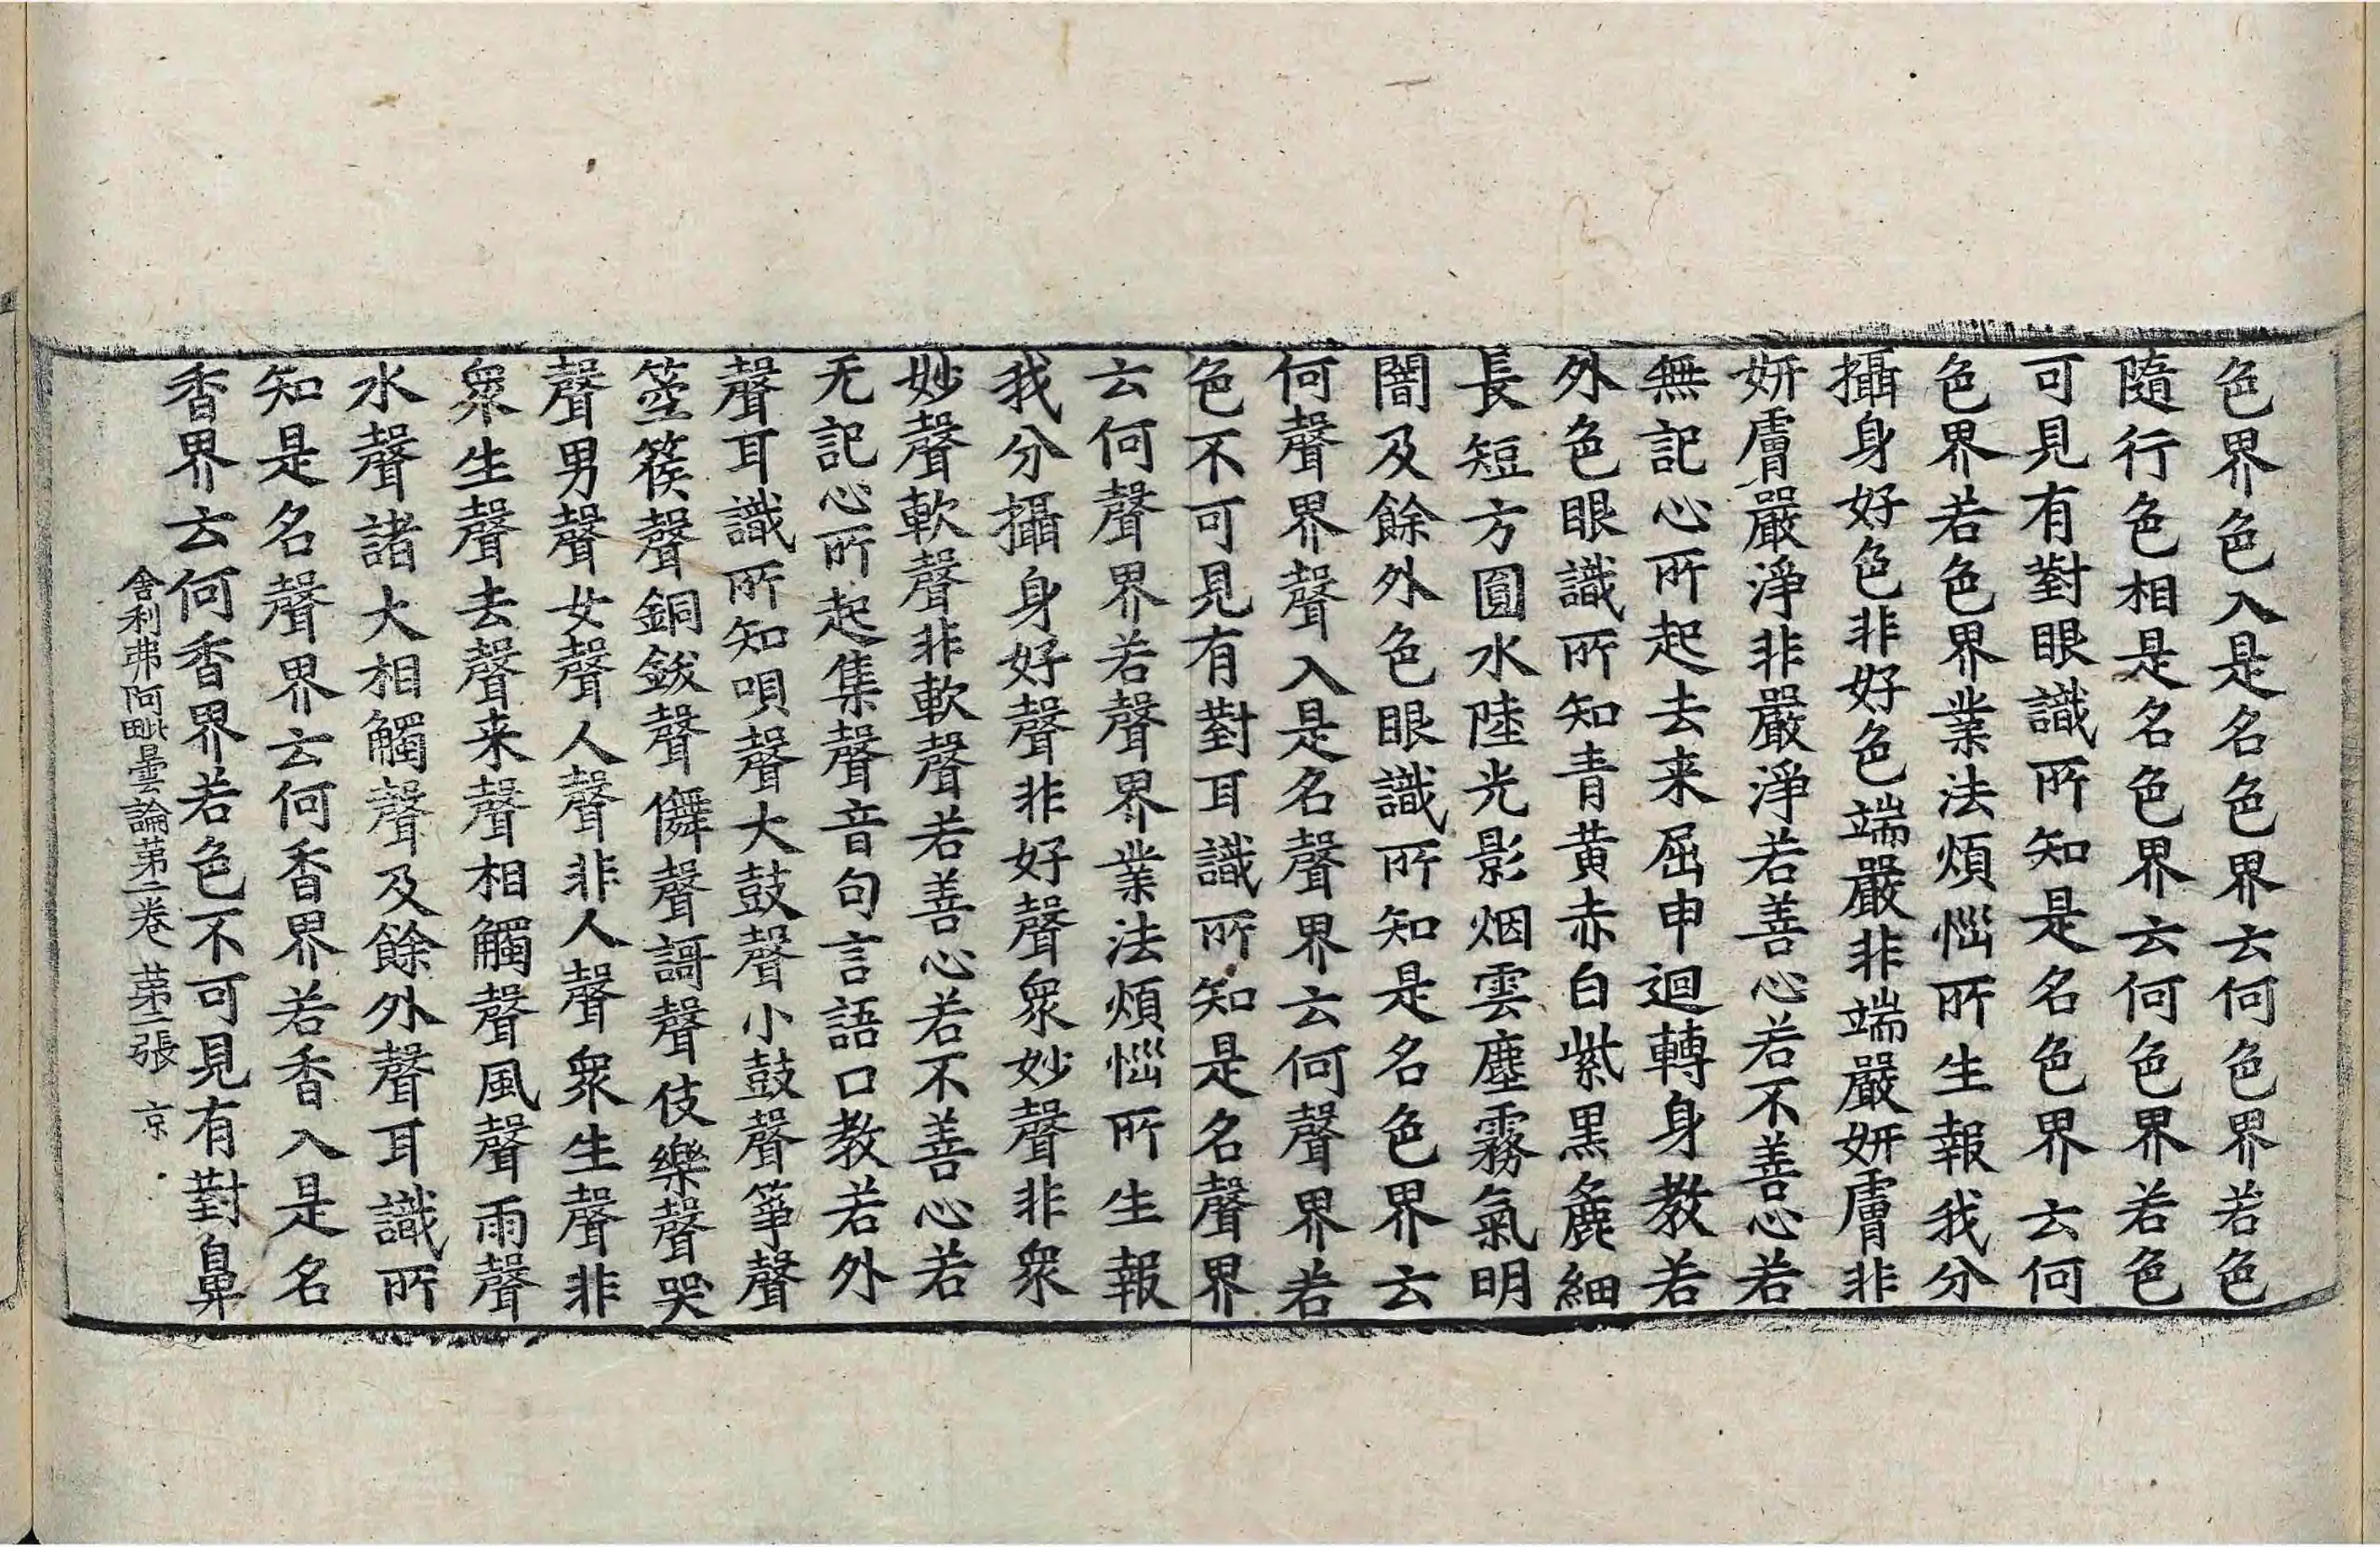 色界色入是名色界云何色界若色
隨行色相是名色界云何色界若色
可見有對眼識所知是名色界云何
色界若色界業法煩惱所生報我分
攝身好色非好色端嚴非端嚴妍膚非
妍膚嚴淨非嚴淨若善心若不善心若
無記心所起去来屈申迴轉身教若
外色眼識所知青黄赤白紫黑麁細
長短方圓水陸光影烟雲塵霧氣明
闇及餘外色眼識所知是名色界云
何聲界聲入是名聲界云何聲界若
色不可見有對耳識所知是名聲界
云何聲界若聲界業法煩惱所生報
我分攝身好聲非好聲衆妙聲非衆
妙聲軟聲非軟聲若善心若不善心若
无記心所起集聲音句言語口教若外
聲耳識所知唄聲大鼓聲小鼓聲箏聲
箜篌聲銅鈸聲儛聲謌聲伎樂聲哭
聲男聲女聲人聲非人聲衆生聲非
衆生聲去聲来聲相觸聲風聲雨聲
水聲諸大相觸聲及餘外聲耳識所
知是名聲界云何香界若香入是名
香界云何香界若色不可見有對鼻
舍利弗阿毗曇論第二卷 第二張 京